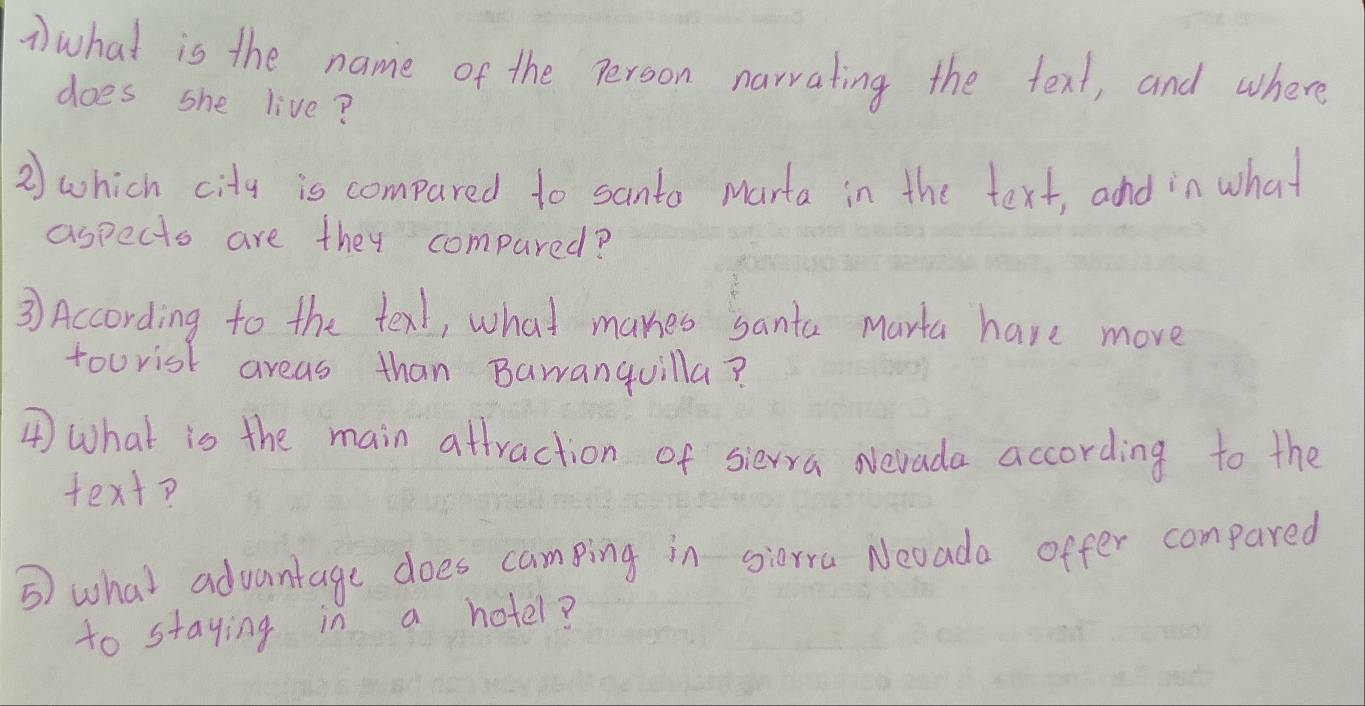 1) what is the name of the Person narrating the text, and where
does she live?
2) which city is compared to santa Marta in the text, and in what
aspects are they compared?
3) According to the text, what makes santa Marta have more
tourist areas than Barranquilla?
4) What is the main attraction of sierra Nevada according to the
text?
5) what advantage does camping in sierra Nevada offer compared
to staying in a hotel?